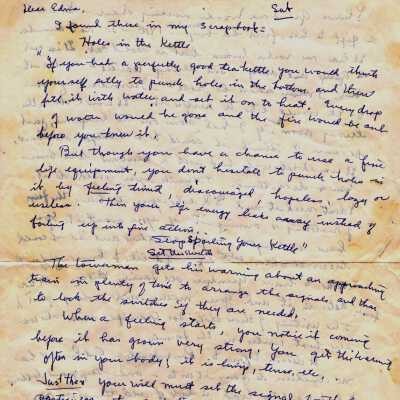 Dear Edna, Sat
I found these in my scrapbook =
Holes in the Kettle
"If you had a perfectly good tea kettle, you would think
yourself silly to punch holes in the bottom, and then
fill it with water, and set it on to heat. Every drop
of water would be gone and the fire would be out
before you knew it.
But though you have a chance to use a fine
life equipment, you don't hesitate to punch holes in
it by feeling timid, discouraged, hopeless, lazy or
useless. Then your life energy leaks away instead of
boiling up into fine action.
Stop Spoiling Your Kettle"
Set the
The towerman gets his warning about an approaching
train in plenty of time to arrange the signals, and then
to lock the switches if they are needed.
When a feeling starts, you notice it coming
before it has grown very strong. You get this warning
often in your body; it is tense, etc.
Just then your will must set the signal